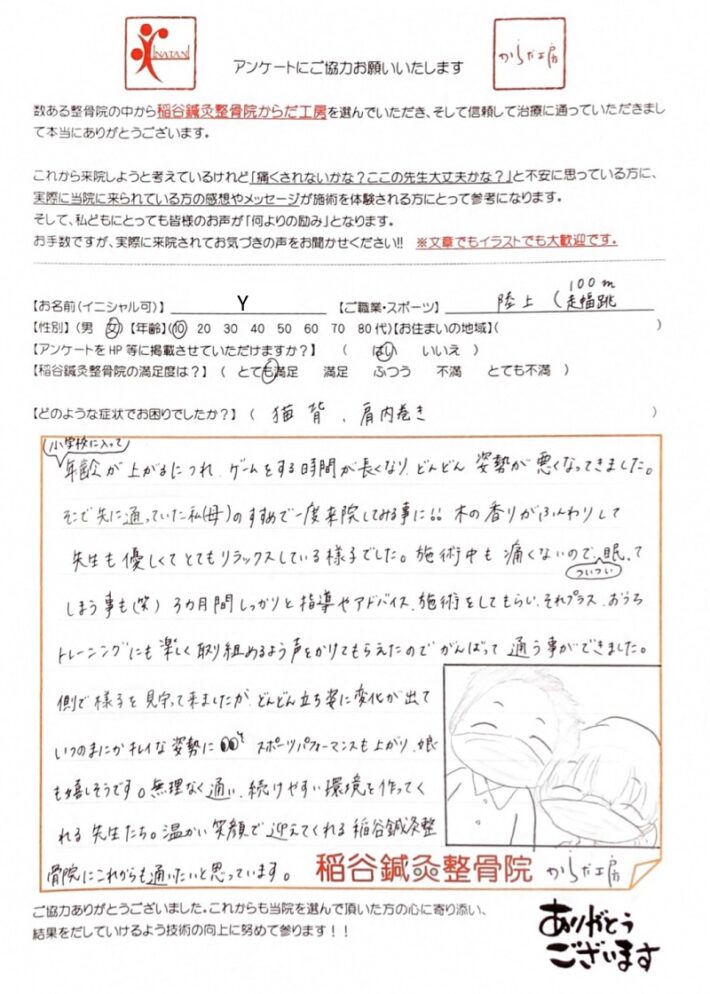 INATANI
からだ工房
アンケートにご協力お願いいたします
数ある整骨院の中から稲谷鍼灸整骨院からだ工房を選んでいただき、そして信頼して治療に通っていただきまし
て本当にありがとうございます。
これから来院しようと考えているけれど「痛くされないかな？ここの先生大丈夫かな？」と不安に思っている方に、
実際に当院に来られている方の感想やメッセージが施術を体験される方にとって参考になります。
そして、私どもにとっても皆様のお声が「何よりの励み」となります。
お手数ですが、実際に来院されてお気づきの声をお聞かせください!! ※文章でもイラストでも大歓迎です。
【お名前(イニシャル可)】 Y 【ご職業・スポーツ】 陸上 (100m 走幅跳
【性別】(男 女)【年齢】(10 20 30 40 50 60 70 80代)【お住まいの地域】( )
【アンケートをHP等に掲載させていただけますか？】 ( はい いいえ )
【稲谷鍼灸整骨院の満足度は？】 ( とても満足 満足 ふつう 不満 とても不満 )
【どのような症状でお困りでしたか？】 ( 猫背、肩内巻き )
小学校に入って
年齢が上がるにつれ、ゲームをする時間が長くなり、どんどん 姿勢が悪くなってきました。
そこで先に通っていた私(母)のすすめで一度来院してみる事に!! 木の香りがふんわりして
先生も優しくてとてもリラックスしている様子でした。施術中も痛くないので、ついつい眠って
しまう事も(笑) 3カ月間しっかりと指導やアドバイス、施術をしてもらい、それプラス、おうち
トレーニングにも楽しく取り組めるよう声をかけてもらえたのでがんばって通う事ができました。
側で様子を見守って来ましたが、どんどん立ち姿に変化が出て
いつのまにかキレイな姿勢に スポーツパフォーマンスも上がり、娘
も嬉しそうです。無理なく通い、続けやすい環境を作ってく
れる先生たち。温かい笑顔で迎えてくれる稲谷鍼灸整
骨院にこれからも通いたいと思っています。
稲谷鍼灸整骨院 からだ工房
ご協力ありがとうございました。これからも当院を選んで頂いた方の心に寄り添い、
結果をだしていけるよう技術の向上に努めて参ります！！
ありがとう
ございます